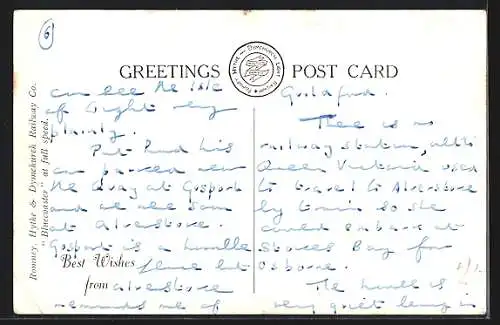 6
GREETINGS POST CARD
Romney, Hythe & Dymchurch Railway Co.
"Bluecoaster" at full speed.
can see the Isle
of Wight very
plainly.
Pat had his
car parked near
the Quay at Gosport
and we are soon
at Alverstoke.
Gosport is a humble
place but
Best Wishes
from
alverstoke
reminds me of
Guildford.
There is no
railway station, altho
Queen Victoria used
to travel to Alverstoke
by train so she
could embark at
Stokes Bay for
Osborne.
The hotel is
very quiet being in